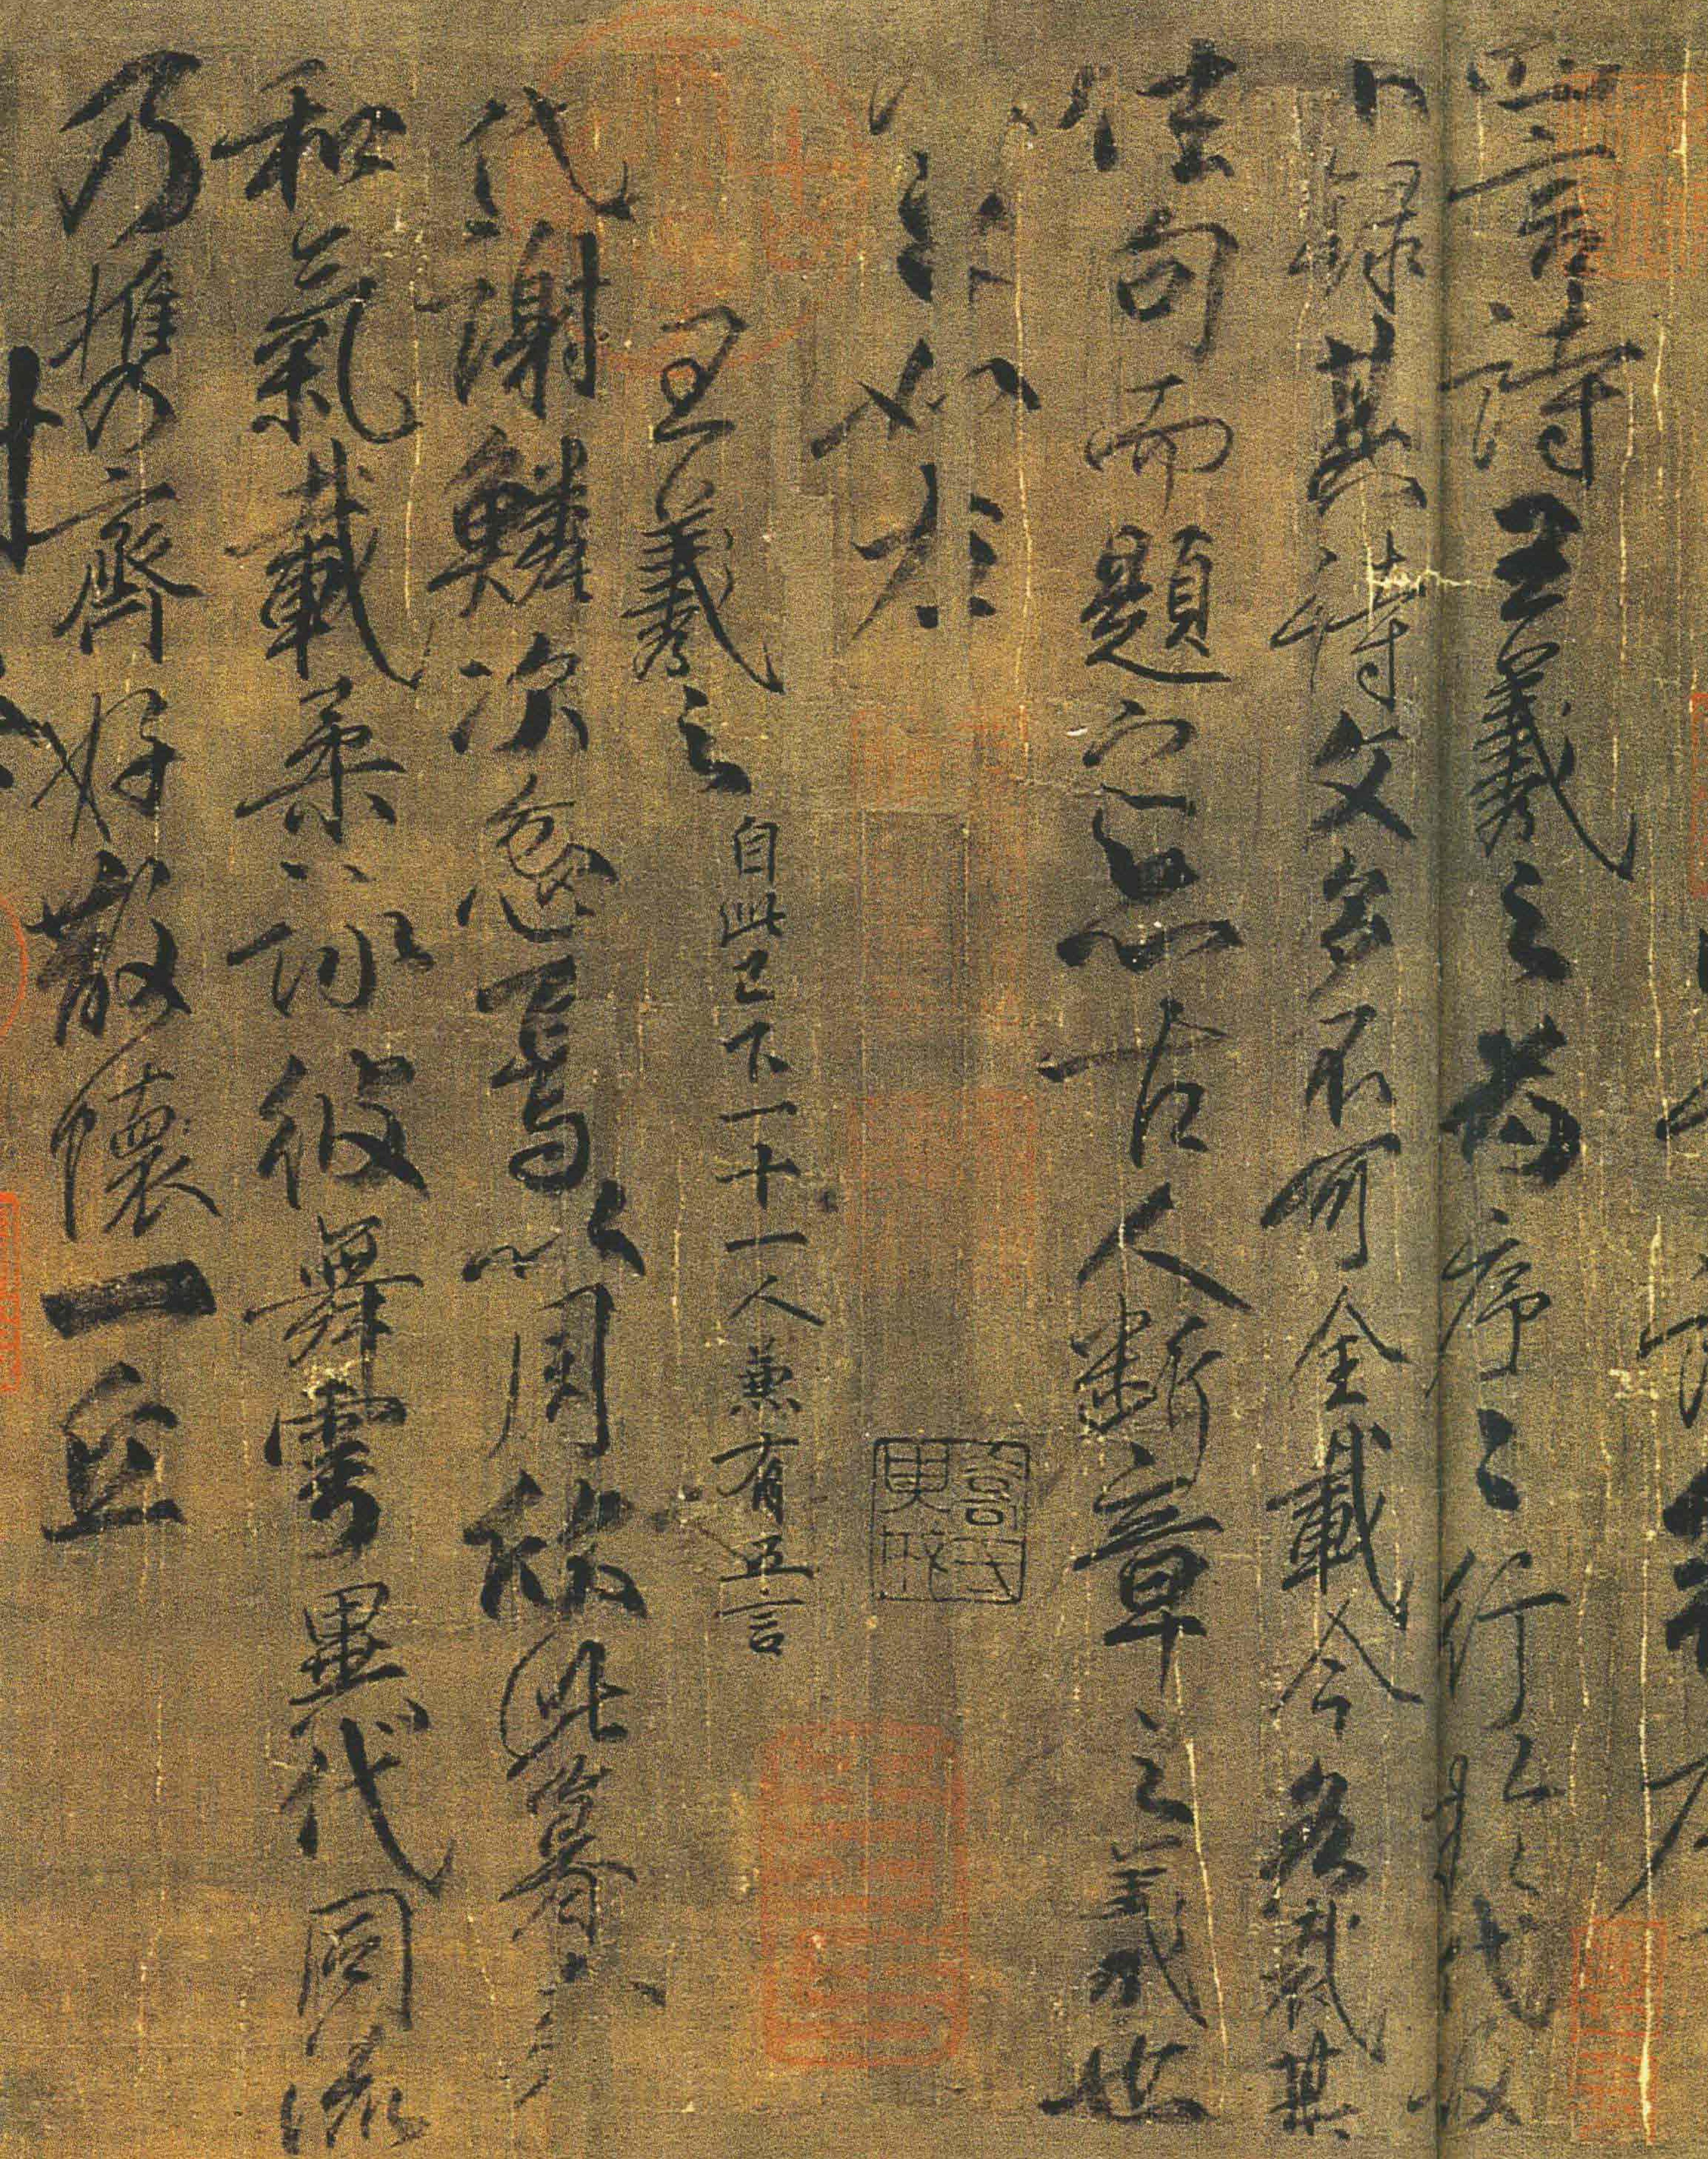 四言詩王羲之為序序行於代故
不錄其詩文多不可全載今各裁其
佳句而題之亦古人斷章之義也
如左
王羲之自此已下一十一人兼有五言
代謝鱗次忽焉以周欣此暮春
和氣載柔詠彼舞雩異代同流
乃攜齊好散懷一丘